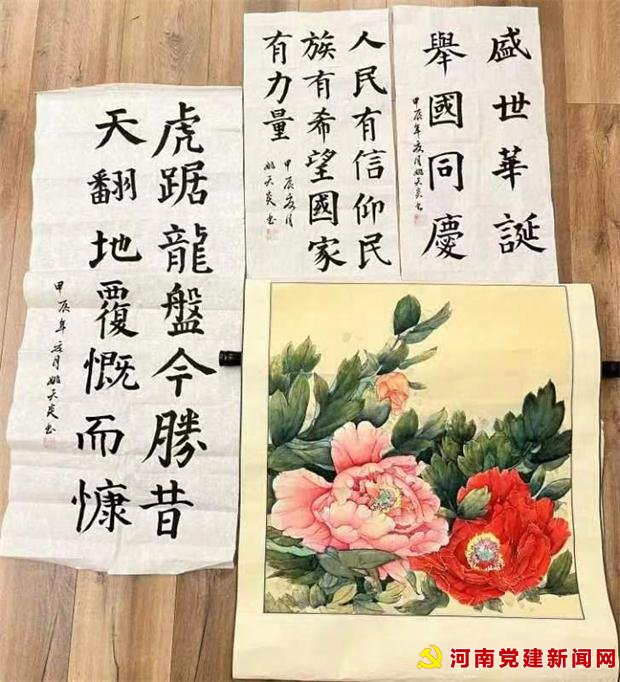 虎踞龍盤今勝昔
天翻地覆慨而慷
甲辰年夏月姚天炎书
人民有信仰民
族有希望國家
有力量
甲辰夏月
姚天炎书
盛世華誕
舉國同慶
甲辰年夏月姚天炎书
河南党建新闻网